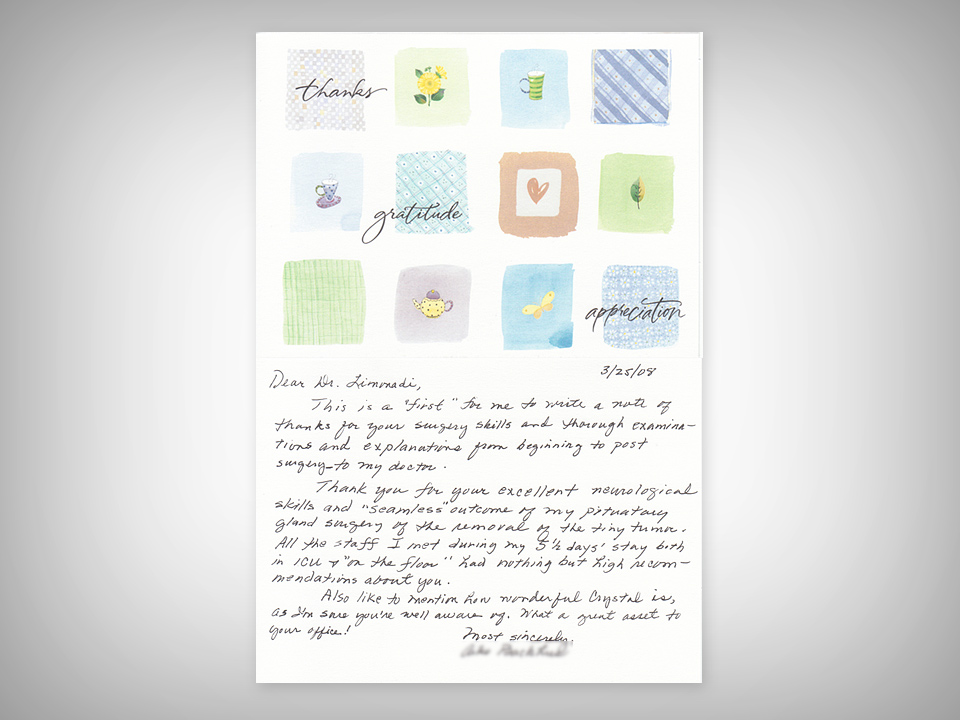 thanks
gratitude
appreciation
3/25/08
Dear Dr. Limonadi,
This is a "first" for me to write a note of
thanks for your surgery skills and thorough examina-
tions and explanations from beginning to post
surgery-to my doctor.
Thank you for your excellent neurological
skills and "seamless" outcome of my pituatary
gland surgery of the removal of the tiny tumor.
All the staff I met during my 5½ days' stay both
in ICU & "on the floor" had nothing but high recom-
mendations about you.
Also like to mention how wonderful Crystal is,
as I'm sure you're well aware of. What a great asset to
your office!
Most sincerely,